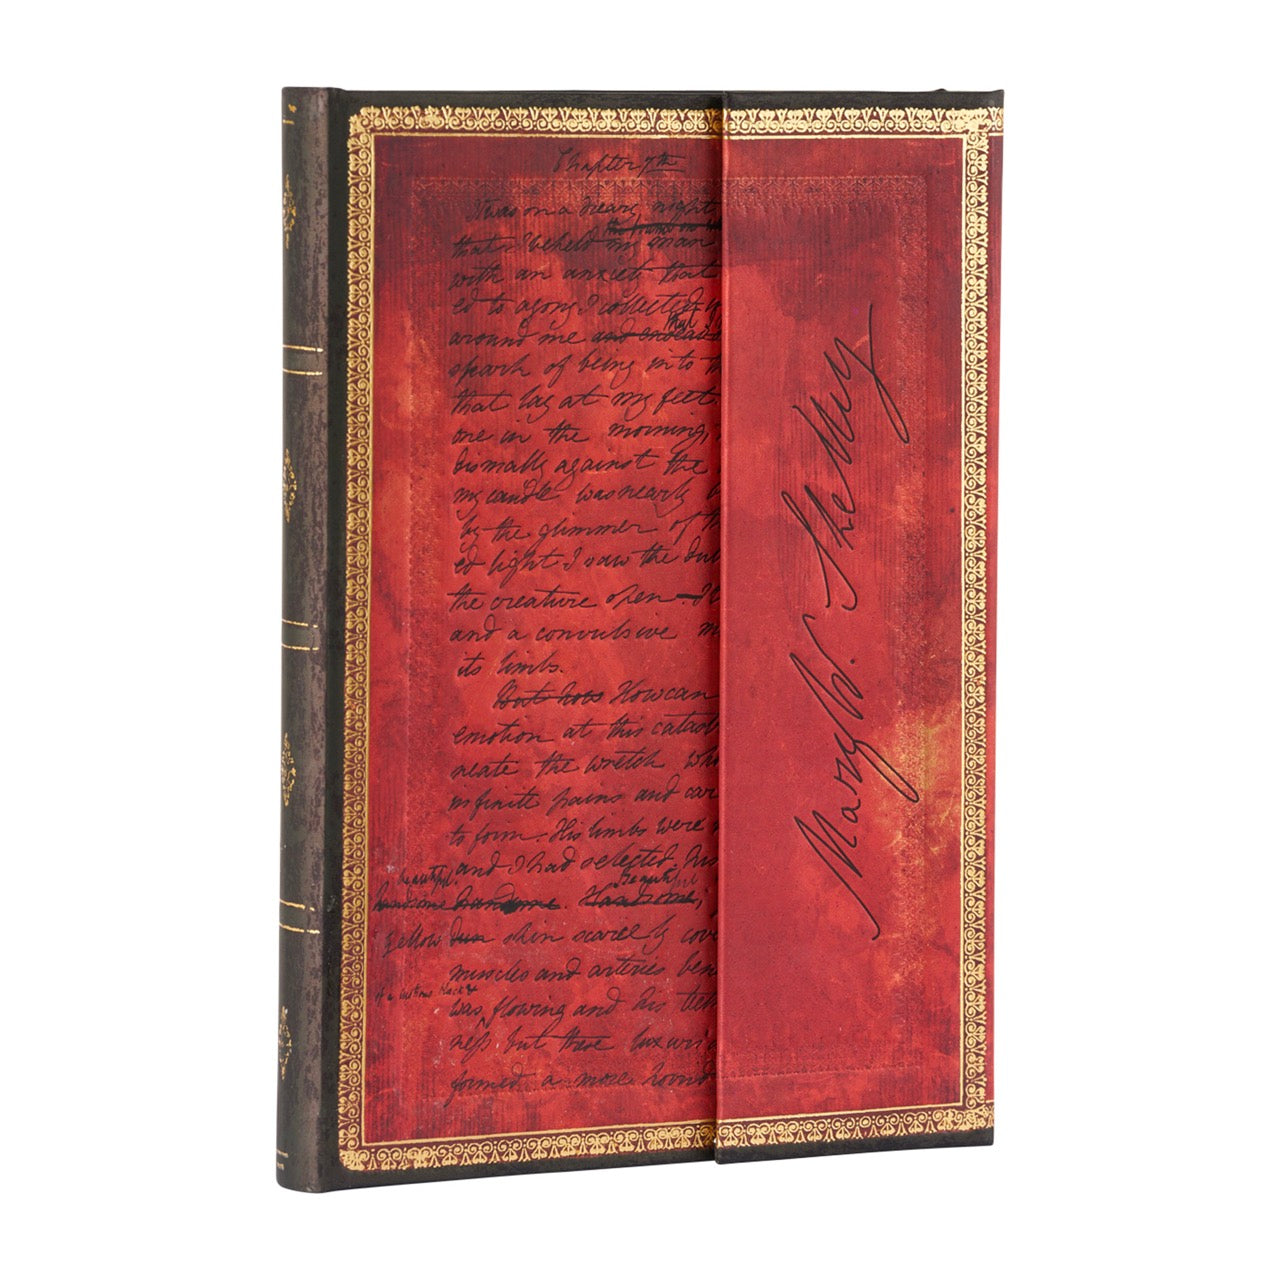 Chapter 7th
It was on a dreary night
that I beheld my man
with an anxiety that
ed to agony I collected
around me and endeav
that
spark of being into
that lay at my feet.
one in the morning,
dismally against the
my candle was nearly
by the glimmer of
ed light I saw the dul
the creature open—
and a convulsive m
its limbs.
But how How can
emotion at this catast
neate the wretch
infinite pains and car
to form. His limbs were
and I had selected his
beautiful. beautiful
handsome handsome. Handsome;
yellow dun skin scarcely cov
muscles and arteries ben
of a lustrous black &
was flowing and his teeth
ness but these luxuri
formed a more horrid
Mary W. Shelley